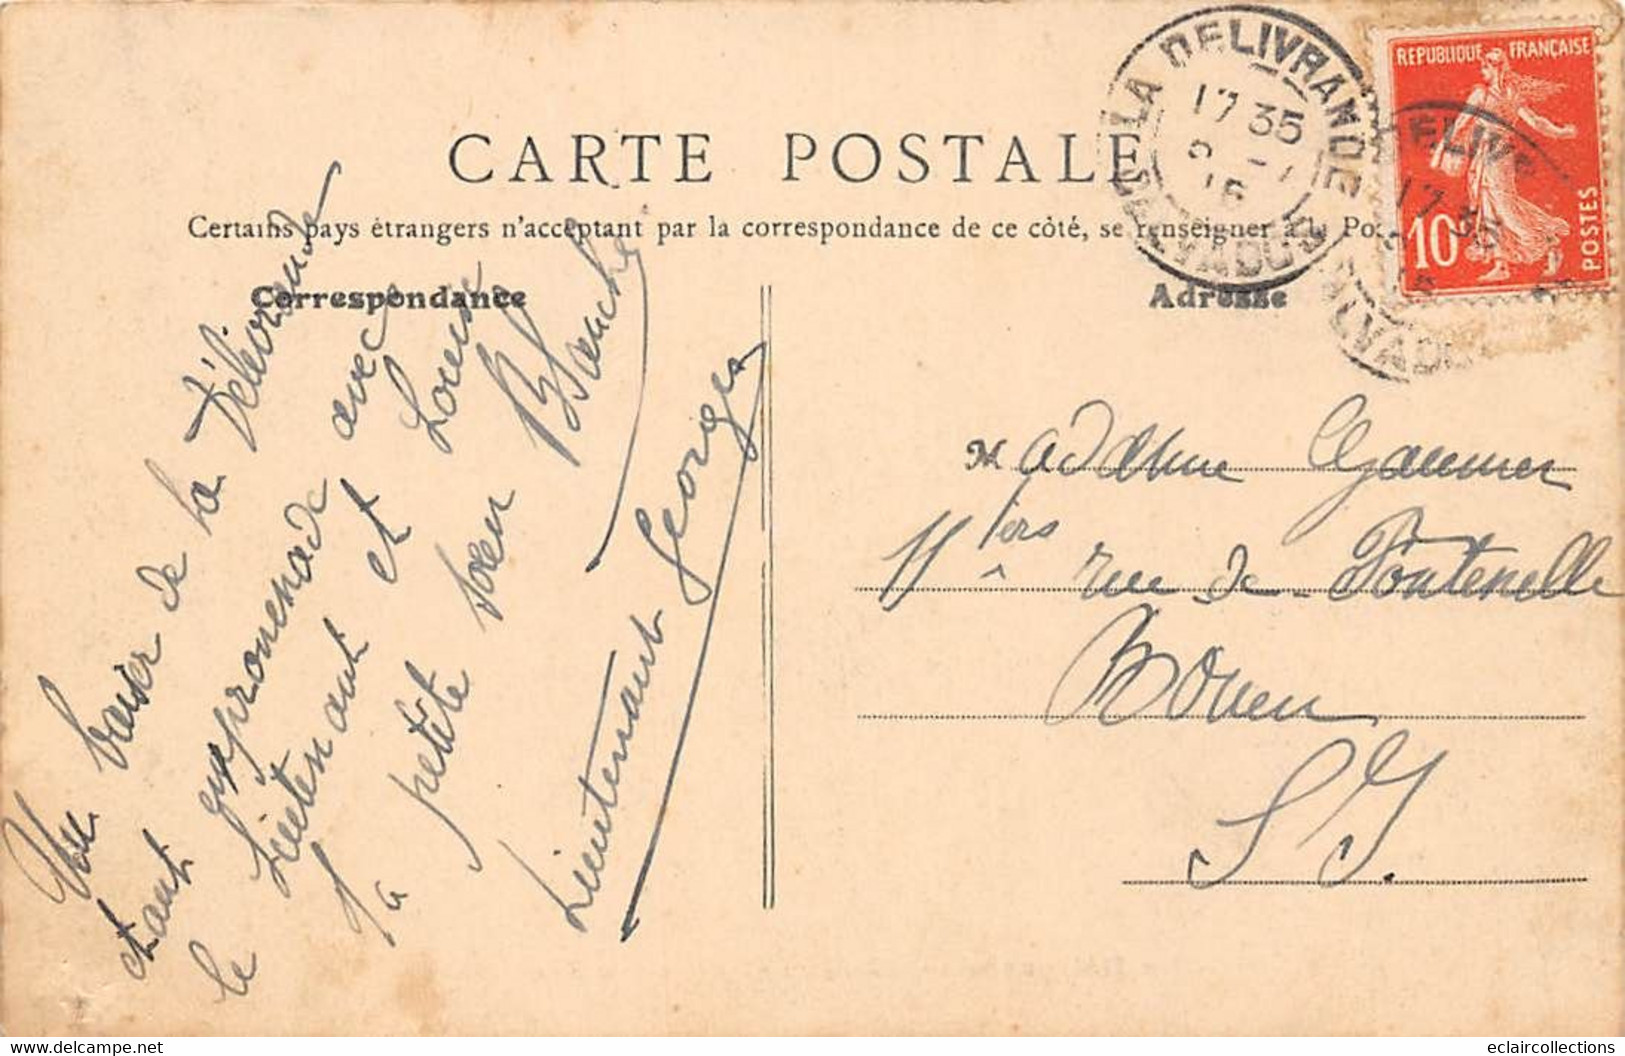 CARTE POSTALE
Certains pays étrangers n'acceptant par la correspondance de ce côté, se renseigner à la Po
Correspondance
Adresse
LA DELIVRANDE
17 35
CALVADOS
REPUBLIQUE FRANÇAISE
10
POSTES
ELIV
17 35
ALVADO
Un baiser de la Délivrande
étant en promenade avec
le Lieutenant et Louise
Ta petite soeur Blanche
Lieutenant Georges
Madame
11 ters rue de Fontenelle
Rouen
S. I.
delcampe.net
eclaircollections